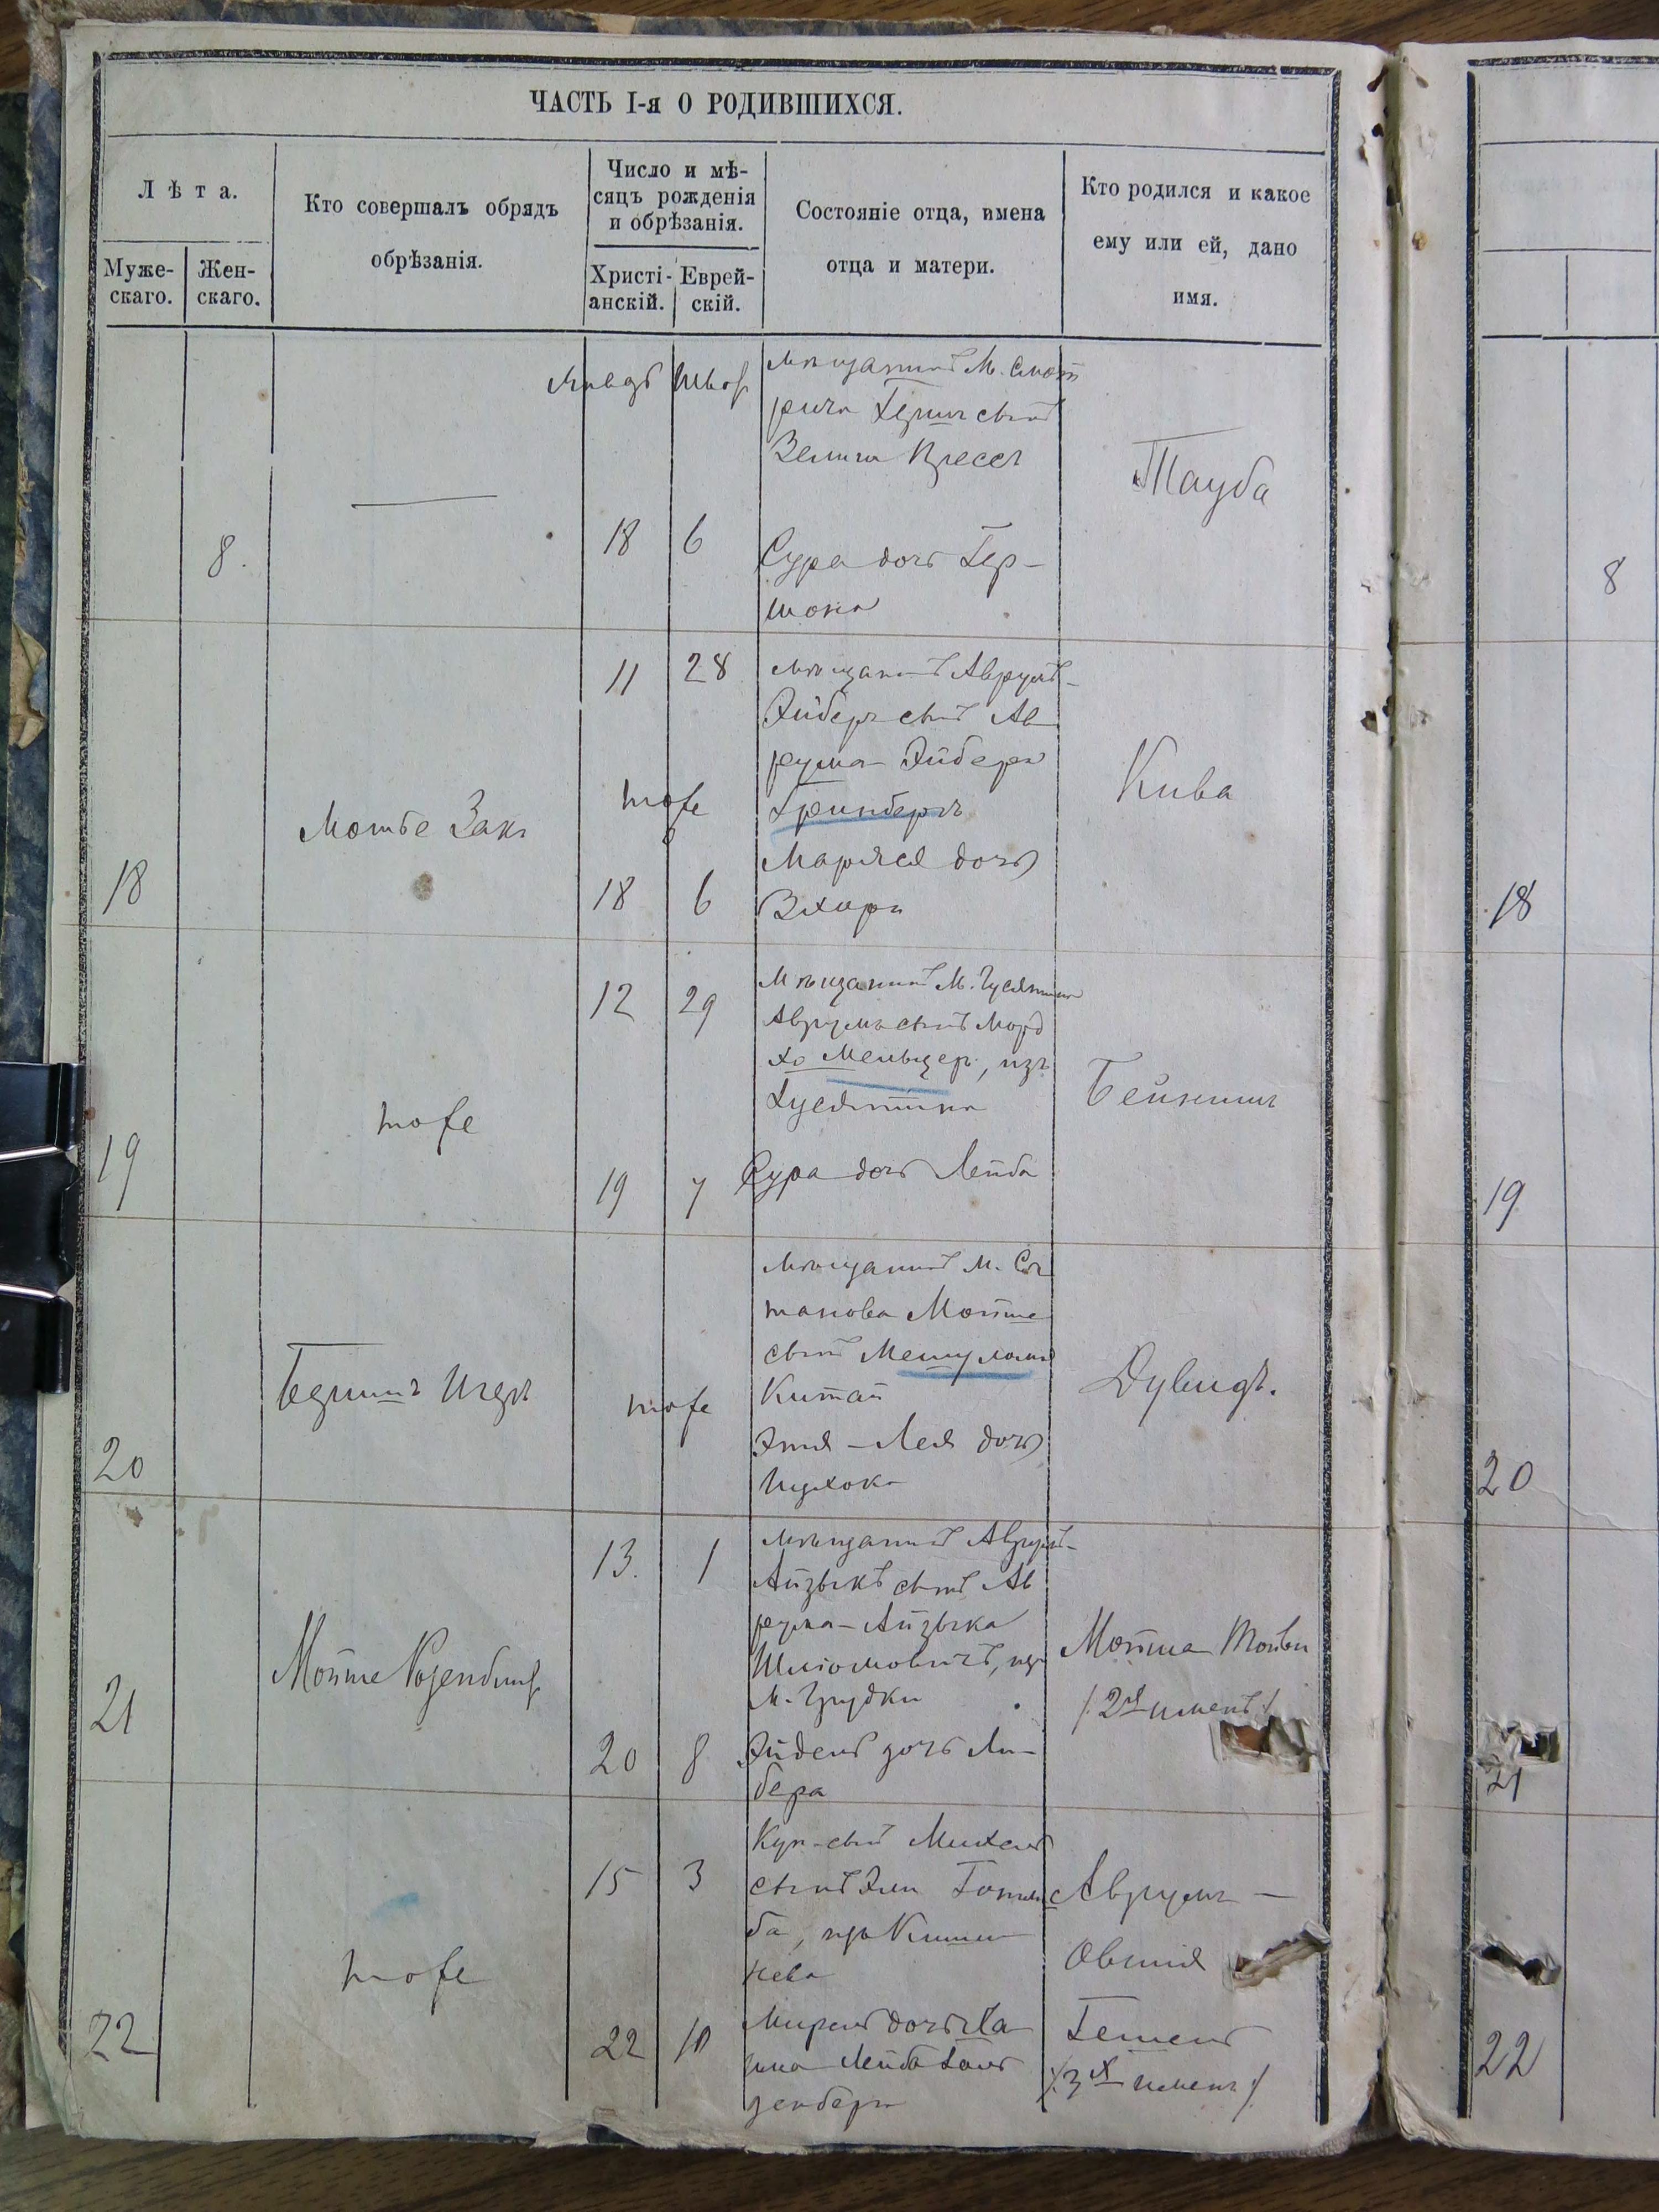 ЧАСТЬ I-я О РОДИВШИХСЯ.
Лѣта.
Муже-
скаго.
Жен-
скаго.
Кто совершалъ обрядъ
обрѣзанія.
Число и мѣ-
сяцъ рожденія
и обрѣзанія.
Христі-
анскій.
Еврей-
скій.
Состояніе отца, имена
отца и матери.
Кто родился и какое
ему или ей, дано
имя.
8.
18
6
мѣщанинъ М. Смот
рича Гершъ сынъ
Зелига
Сура дочь Гер-
шона
Тауба
8
18
Мотье Закъ
11
28
тоже
18
6
мѣщанинъ Аврумъ-
Эйберъ сынъ Ав
рума Эйбера
Гринбергъ
Маряся дочь
Кива
18
19
тоже
12
29
19
7
Мѣщанинъ М. Гусятина
Аврумъ сынъМорд
ко Мельцер, изъ
Гусятина
Сура дочь Лейба
Бейнишъ
19
20
тоже
мѣщанинъ М. Са
танова Мотте
сынъ Мешулома
Китай
Этя-Лея дочь
Ицхока
Дувидъ.
20
21
Мотте Розенблит
13.
1
20
8
мѣщанинъ Аврумъ-
Айзыкъ сынъ Ав
рума-Айзыка
Шліомовичъ, изъ
М.
Эйдень дочь Ли-
бера
Мотта
/2я именъ/
21
22
тоже
15
3
22
10
Куп-сынъ Михель
сынъ Эли Готли
ба, изъ Киши
нева
Мирель дочь Ха
има Лейба Голь
денберга
Аврумъ-
Овшия
Гешель
/3я именъ/
22